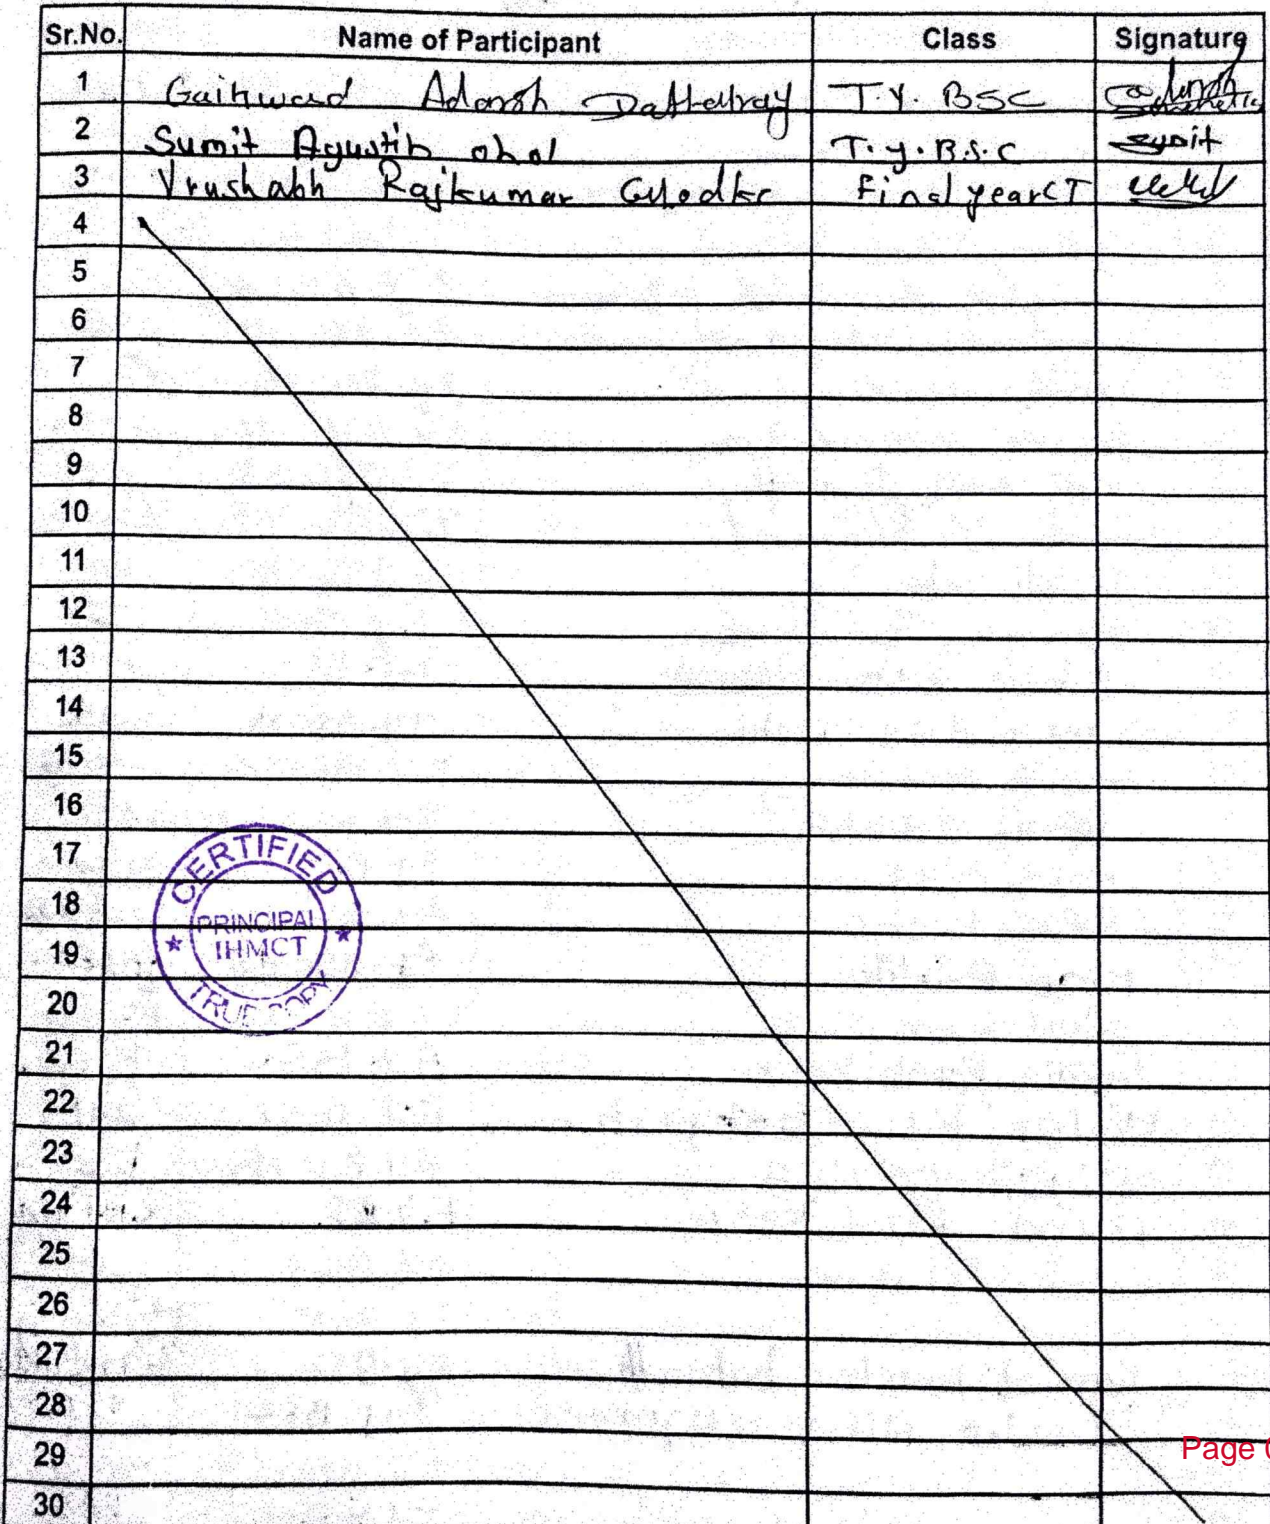 Sr.No. Name of Participant Class Signature
1 Gaikwad Adarsh Dattatray T.Y. BSC
2 Sumit Agustin ohol T.y.B.S.C Sumit
3 Vrushabh Rajkumar Final year CT
4
5
6
7
8
9
10
11
12
13
14
15
16
17
18
19
20
21
22
23
24
25
26
27
28
29
30
CERTIFIED
PRINCIPAL
IHMCT
TRUE COPY
Page